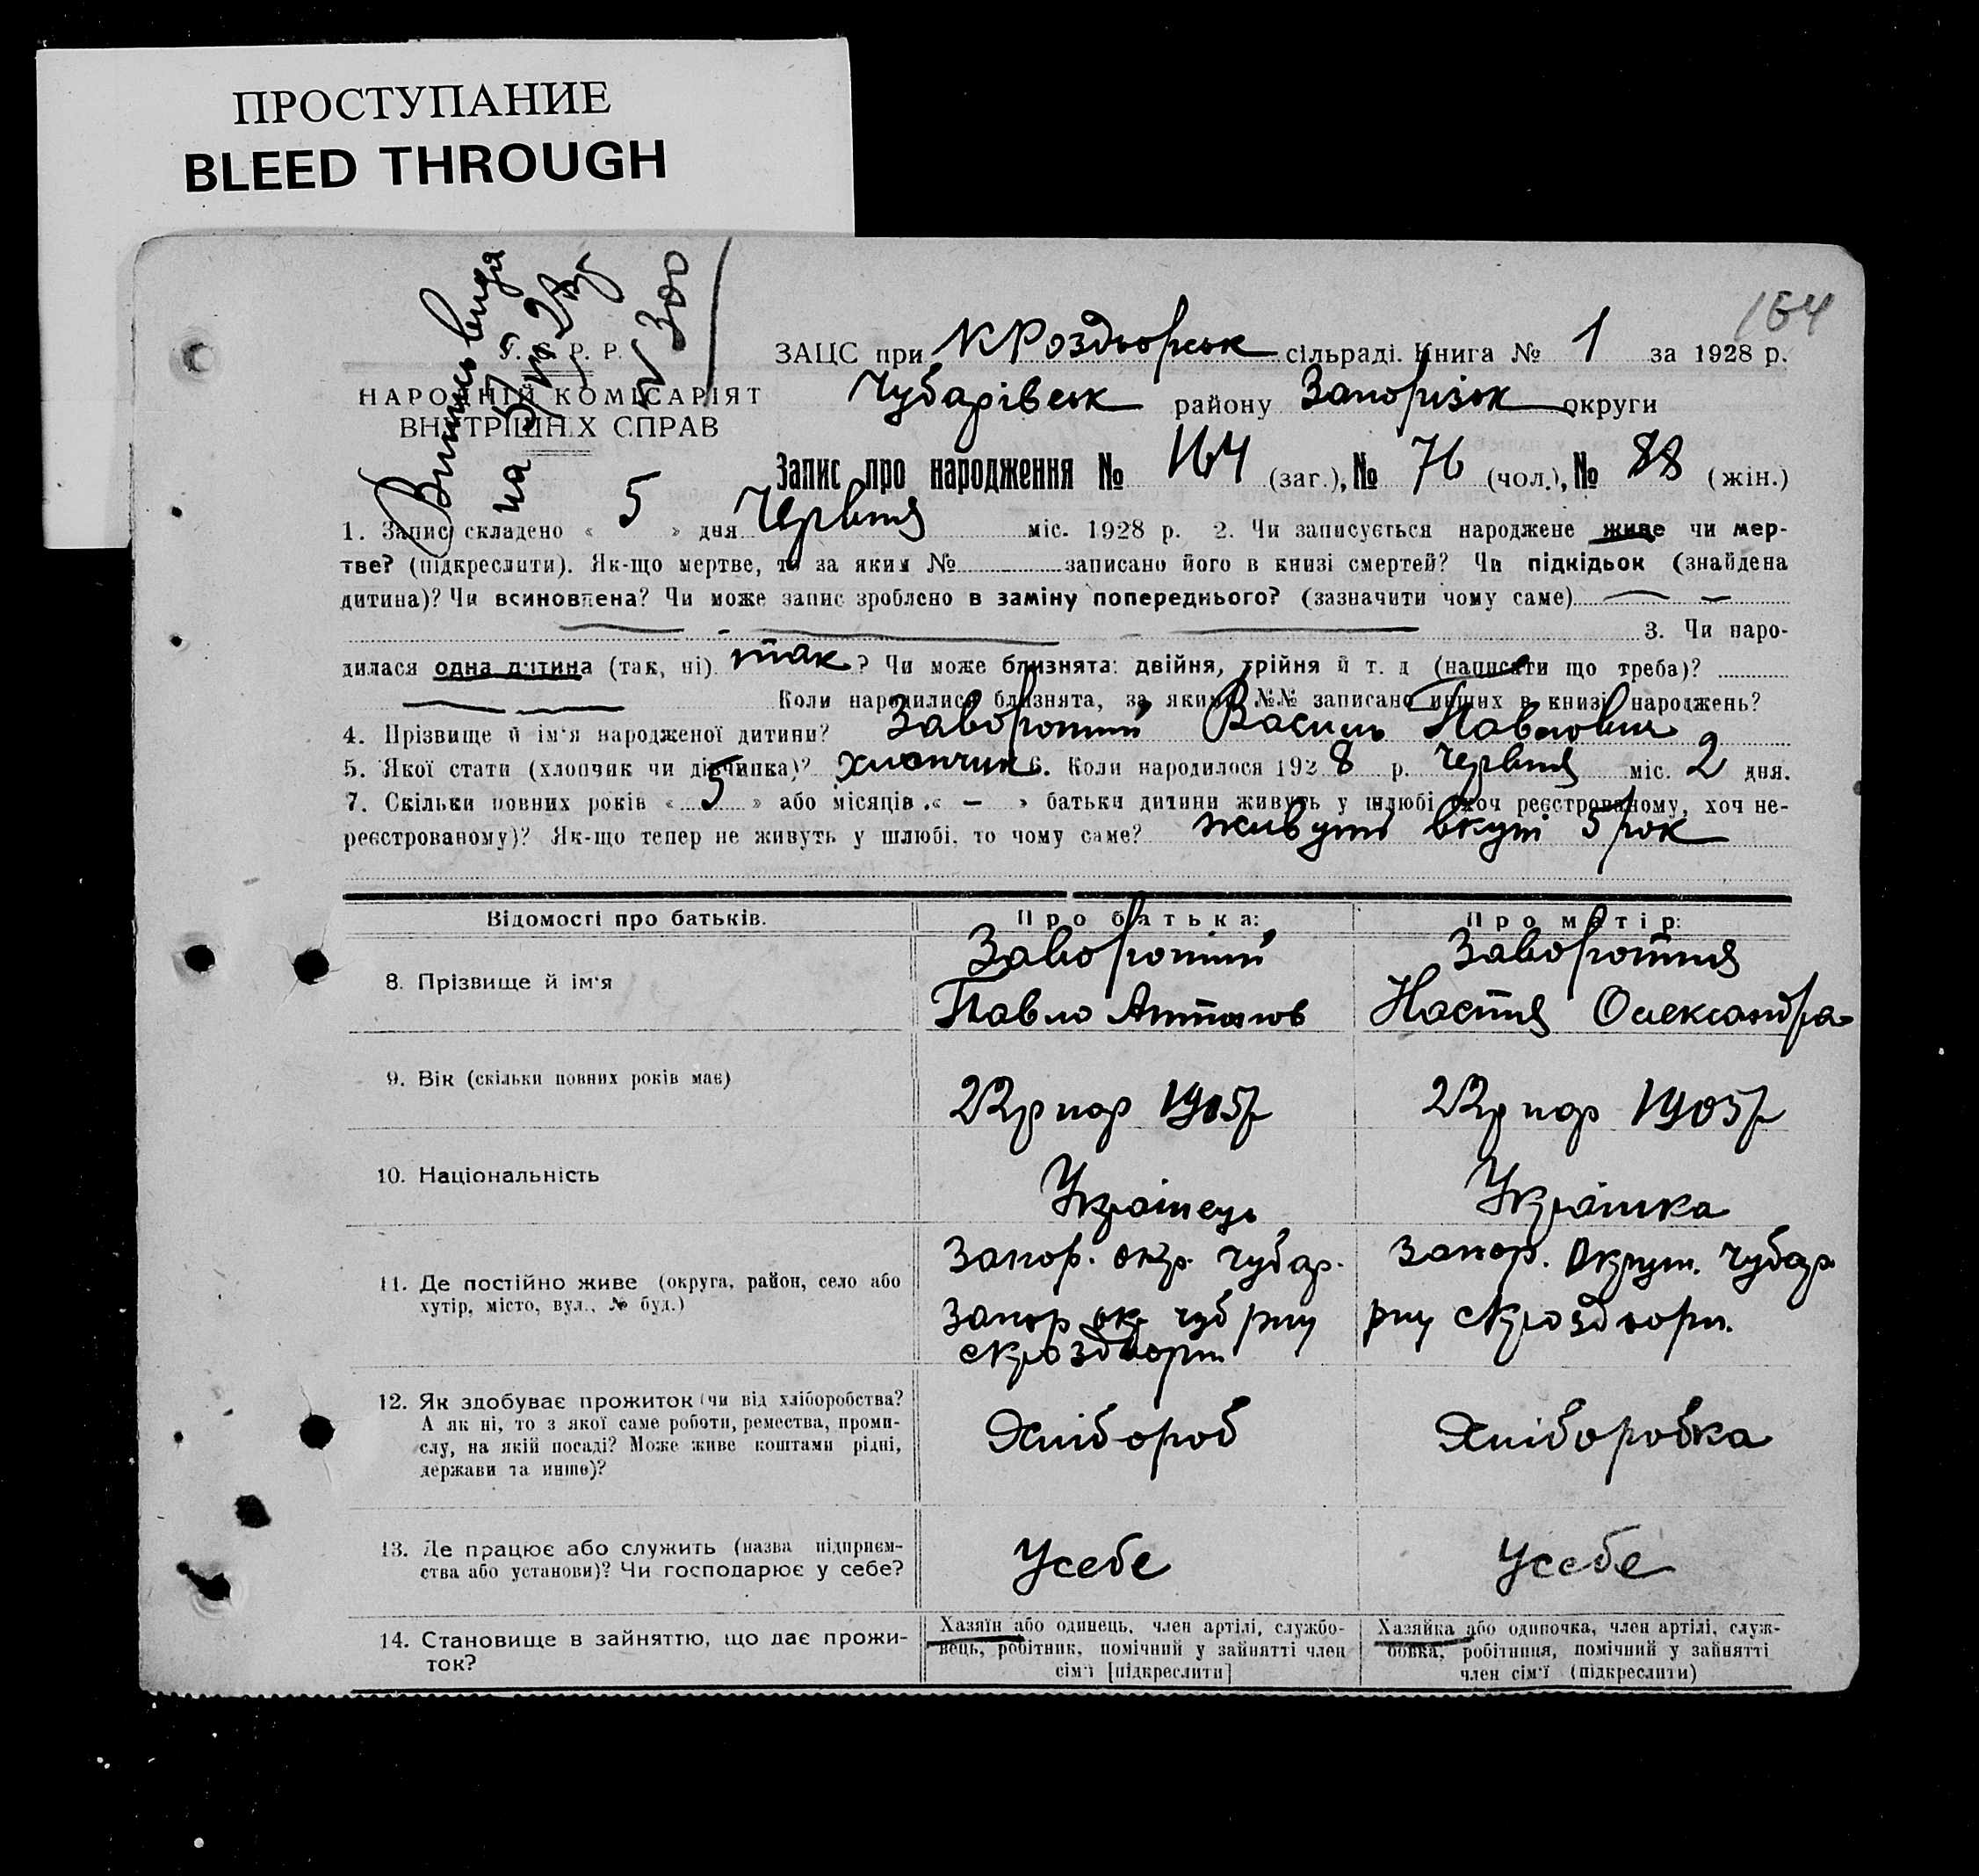 ПРОСТУПАНИЕ
BLEED THROUGH
164
Р. Р.
НАРОДНІЙ КОМІСАРІЯТ
ВНУТРІШНІХ СПРАВ
№ 300
ЗАЦС при КРоздорськ сільраді. Книга № 1 за 1928 р.
Чубарівськ району Запорізьк округи
Запис про народження № 164 (заг.), № 76 (чол.), № 88 (жін.)
1. Запис складено « 5 » дня Червня міс. 1928 р. 2. Чи записується народжене живе чи мер-
тве? (підкреслити). Як-що мертве, то за яким № записано його в книзі смертей? Чи підкідьок (знайдена
дитина)? Чи всиновлена? Чи може запис зроблено в заміну попереднього? (зазначити чому саме)
3. Чи наро-
дилася одна дитина (так, ні) так? Чи може близнята: двійня, трійня й т. д (написати що треба)?
Коли народилися близнята, за якими №№ записано инших в книзі народжень?
4. Прізвище й ім'я народженої дитини? Заворотній Василь Павлович
5. Якої стати (хлопчик чи дівчинка)? хлопчик 6. Коли народилося 1928 р. Червня міс. 2 дня.
7. Скільки повних років « 5 » або місяців « — » батьки дитини живуть у шлюбі (хоч реєстрованому, хоч не-
реєстрованому)? Як-що тепер не живуть у шлюбі, то чому саме? живуть вкупі 5 рок
Відомості про батьків. Про батька: Про матір:
8. Прізвище й ім'я Заворотній Заворотня
Павло Антонов Настя Олександра
9. Вік (скільки повних років має) 22р нар 1905р 22р нар 1905р
10. Національність Українець Українка
11. Де постійно живе (округа, район, село або
хутір, місто, вул., № буд.)
Запор. окр. Чубар. Запор. Округ. Чубар
Запор ок. чуб рну рну скроздори.
12. Як здобуває прожиток (чи від хліборобства?
А як ні, то з якої саме роботи, ремества, проми-
слу, на якій посаді? Може живе коштами рідні,
держави та инше)?
Хлібороб Хліборобка
13. Де працює або служить (назва підприєм-
ства або установи)? Чи господарює у себе?
Усебе Усебе
14. Становище в зайняттю, що дає прожи-
ток?
Хазяїн або одинець, член артілі, службо-
вець, робітник, помічний у зайнятті член
сім'ї [підкреслити]
Хазяйка або одиночка, член артілі, служ-
бовка, робітниця, помічний у зайнятті
член сім'ї (підкреслити)